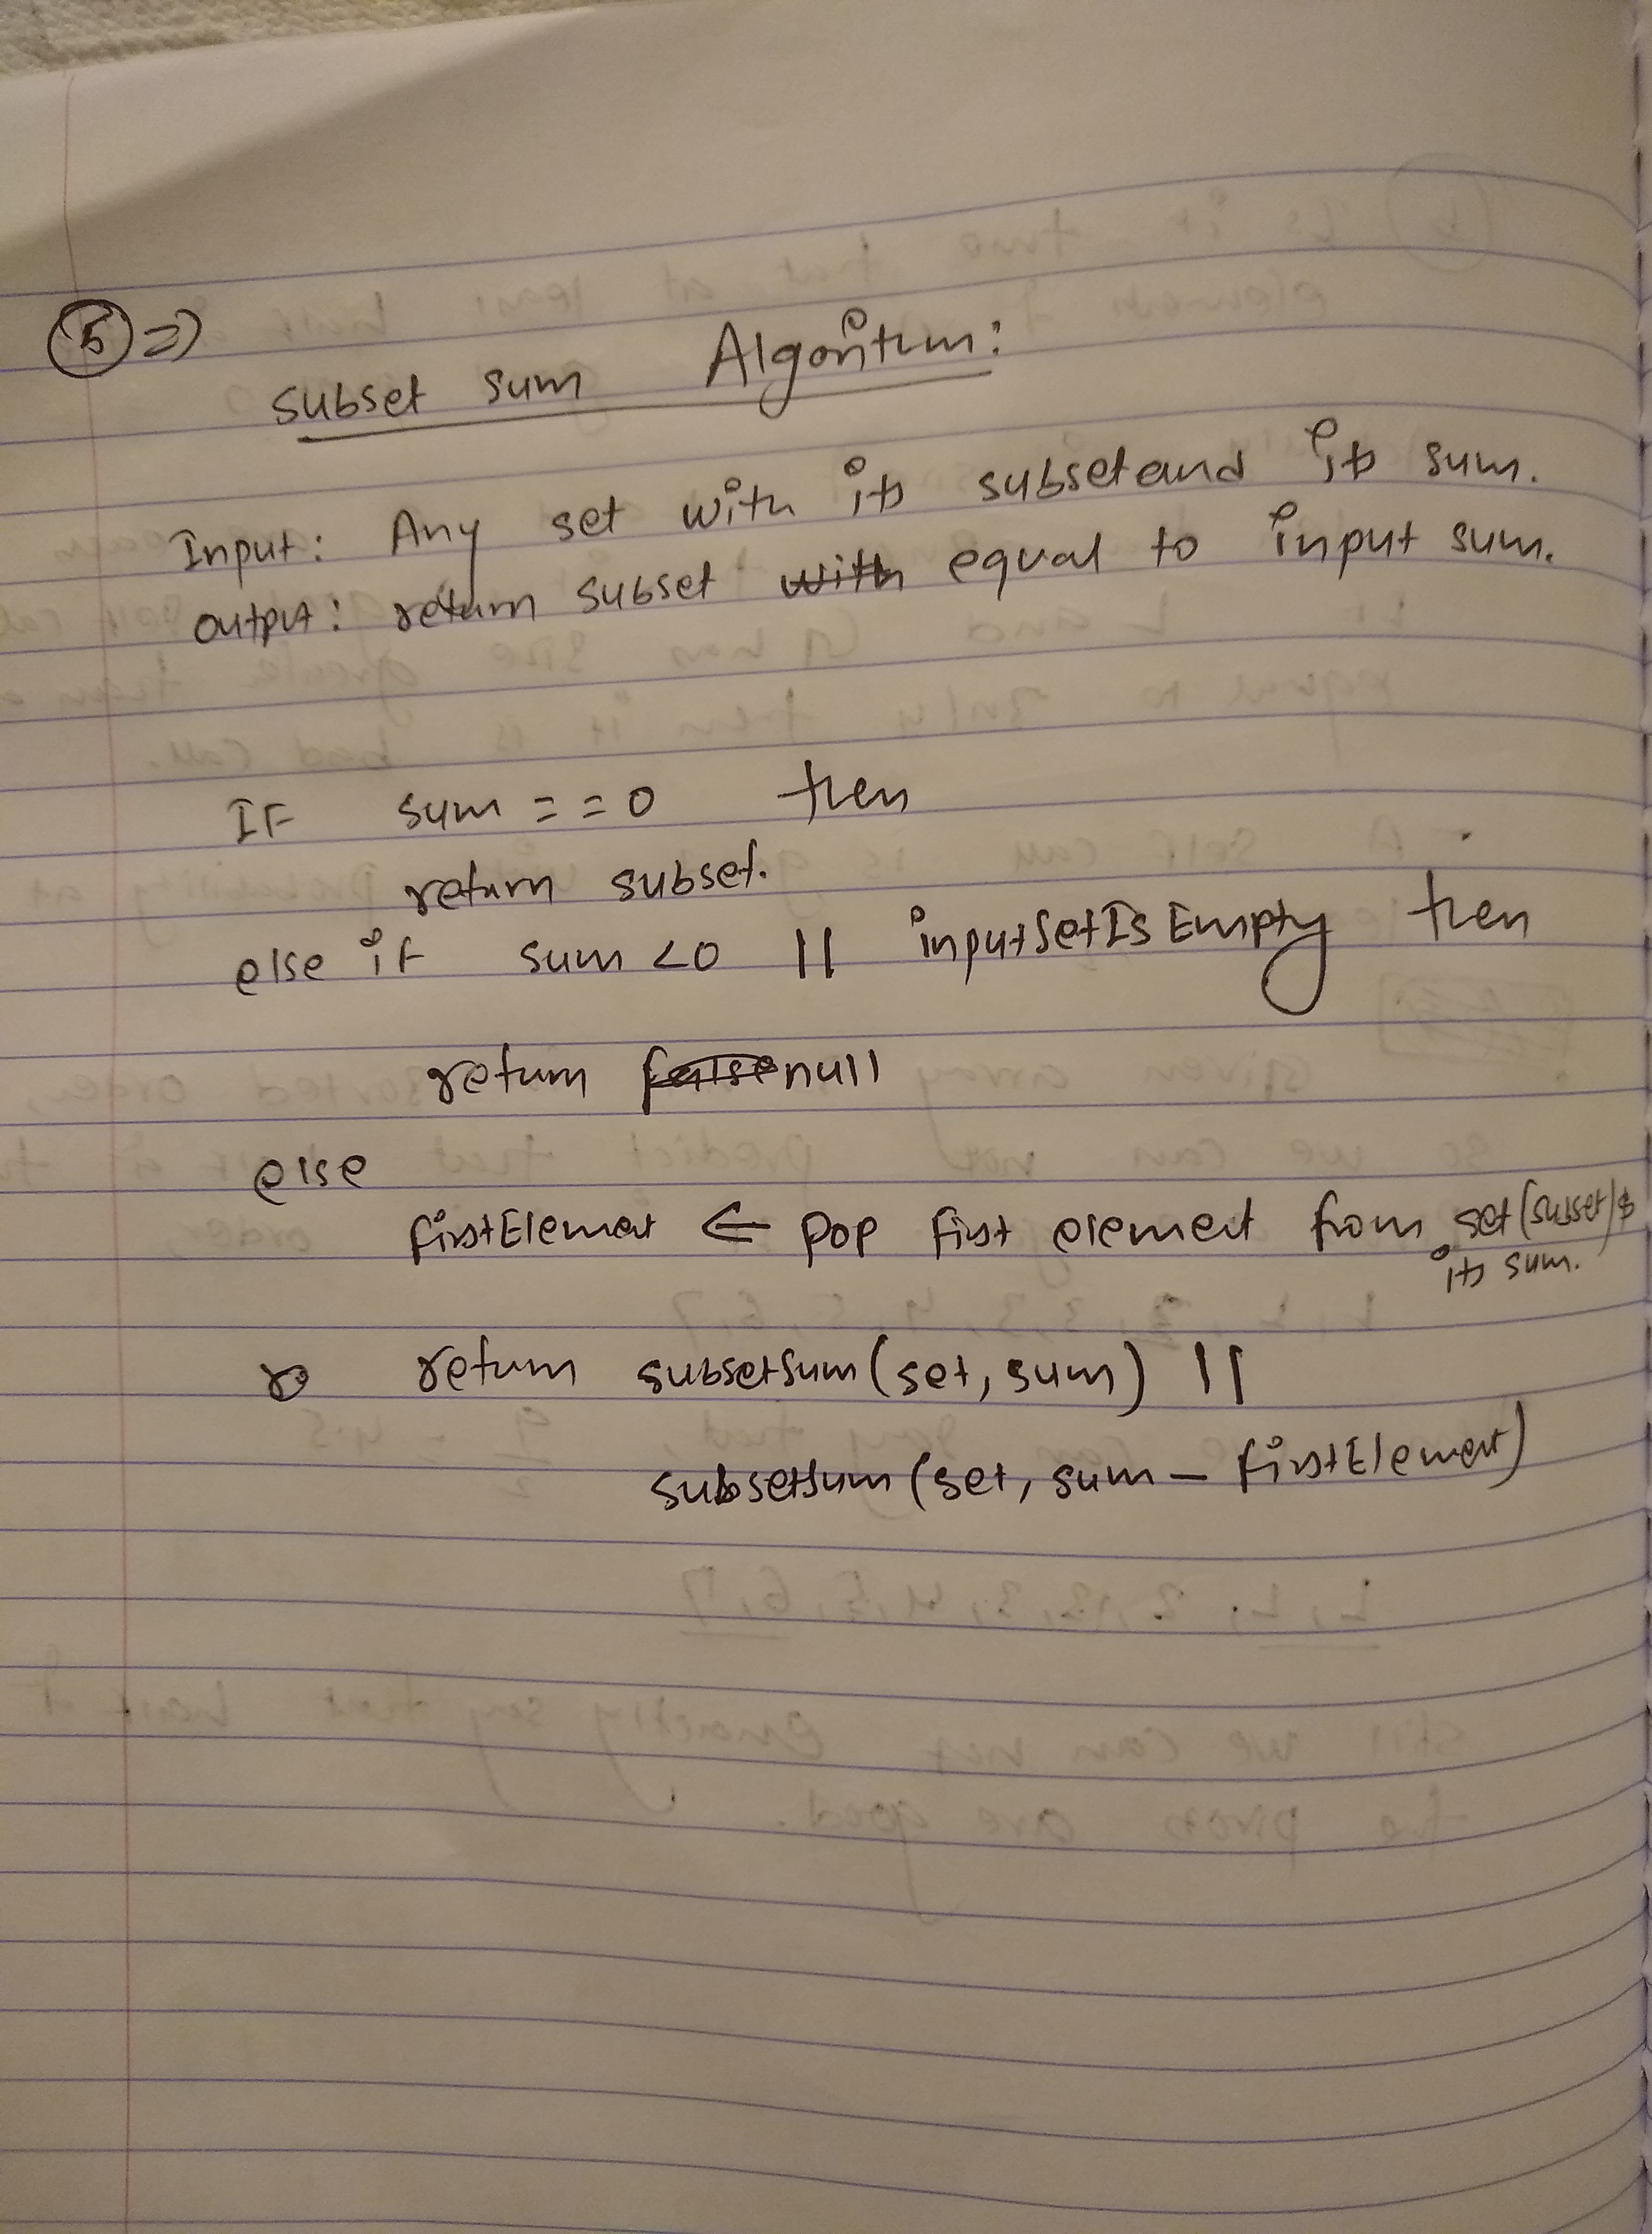 5 =>
subset sum Algorithm:
Input: Any set with its subset and its sum.
output: return subset with equal to input sum.
IF sum == 0 then
return subset.
else if sum <0 || inputSetIsEmpty then
return false null
else
firstElement <- pop first element from set(subset)&
its sum.
return subsetsum(set, sum) ||
subsetsum(set, sum - firstElement)